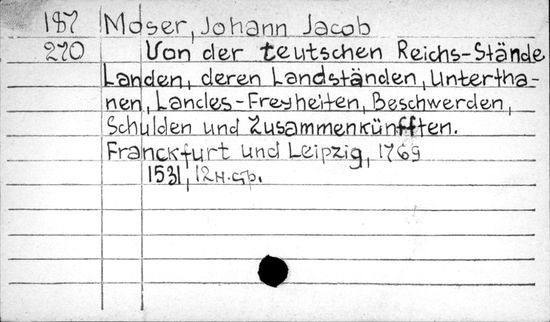 187 Moser, Johann Jacob
270 Von der teutschen Reichs-Stände
Landen, deren Landständen, Untertha-
nen, Landes-Freyheiten, Beschwerden,
Schulden und Zusammenkünfften.
Franckfurt und Leipzig, 1769
1531, 12H. Gb.